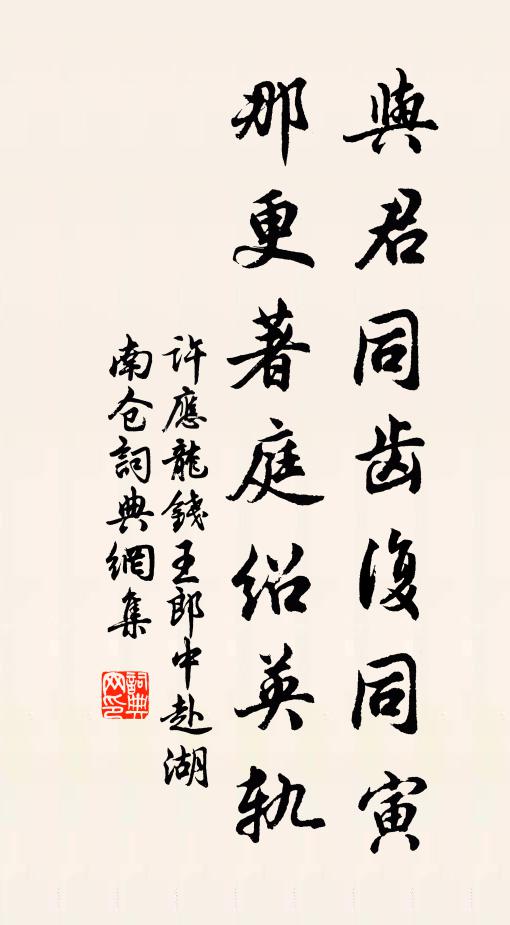 與君同齿復同寅
那更著庭绍英軌
许應龍錢王郎中赴湖
南仓詞典網集
詞典
网印